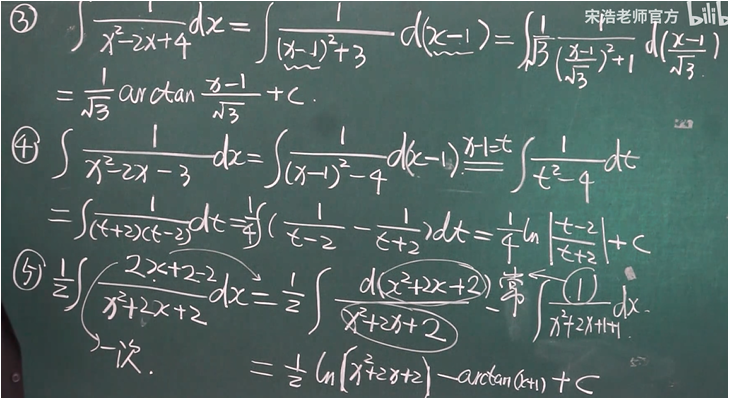 宋浩老师官方 bilib
③ ∫ 1/(x²-2x+4) dx = ∫ 1/((x-1)²+3) d(x-1) = ∫ 1/√3 1/(((x-1)/√3)²+1) d((x-1)/√3)
= 1/√3 arctan (x-1)/√3 + C.
④ ∫ 1/(x²-2x-3) dx = ∫ 1/((x-1)²-4) d(x-1) x-1=t == ∫ 1/(t²-4) dt
= ∫ 1/((t+2)(t-2)) dt = 1/4 ∫ (1/(t-2) - 1/(t+2)) dt = 1/4 ln |(t-2)/(t+2)| + C
⑤ 1/2 ∫ (2x+2-2)/(x²+2x+2) dx = 1/2 ∫ d(x²+2x+2)/(x²+2x+2) - 常 ∫ 1/(x²+2x+1+1) dx
一次.
= 1/2 ln(x²+2x+2) - arctan(x+1) + C